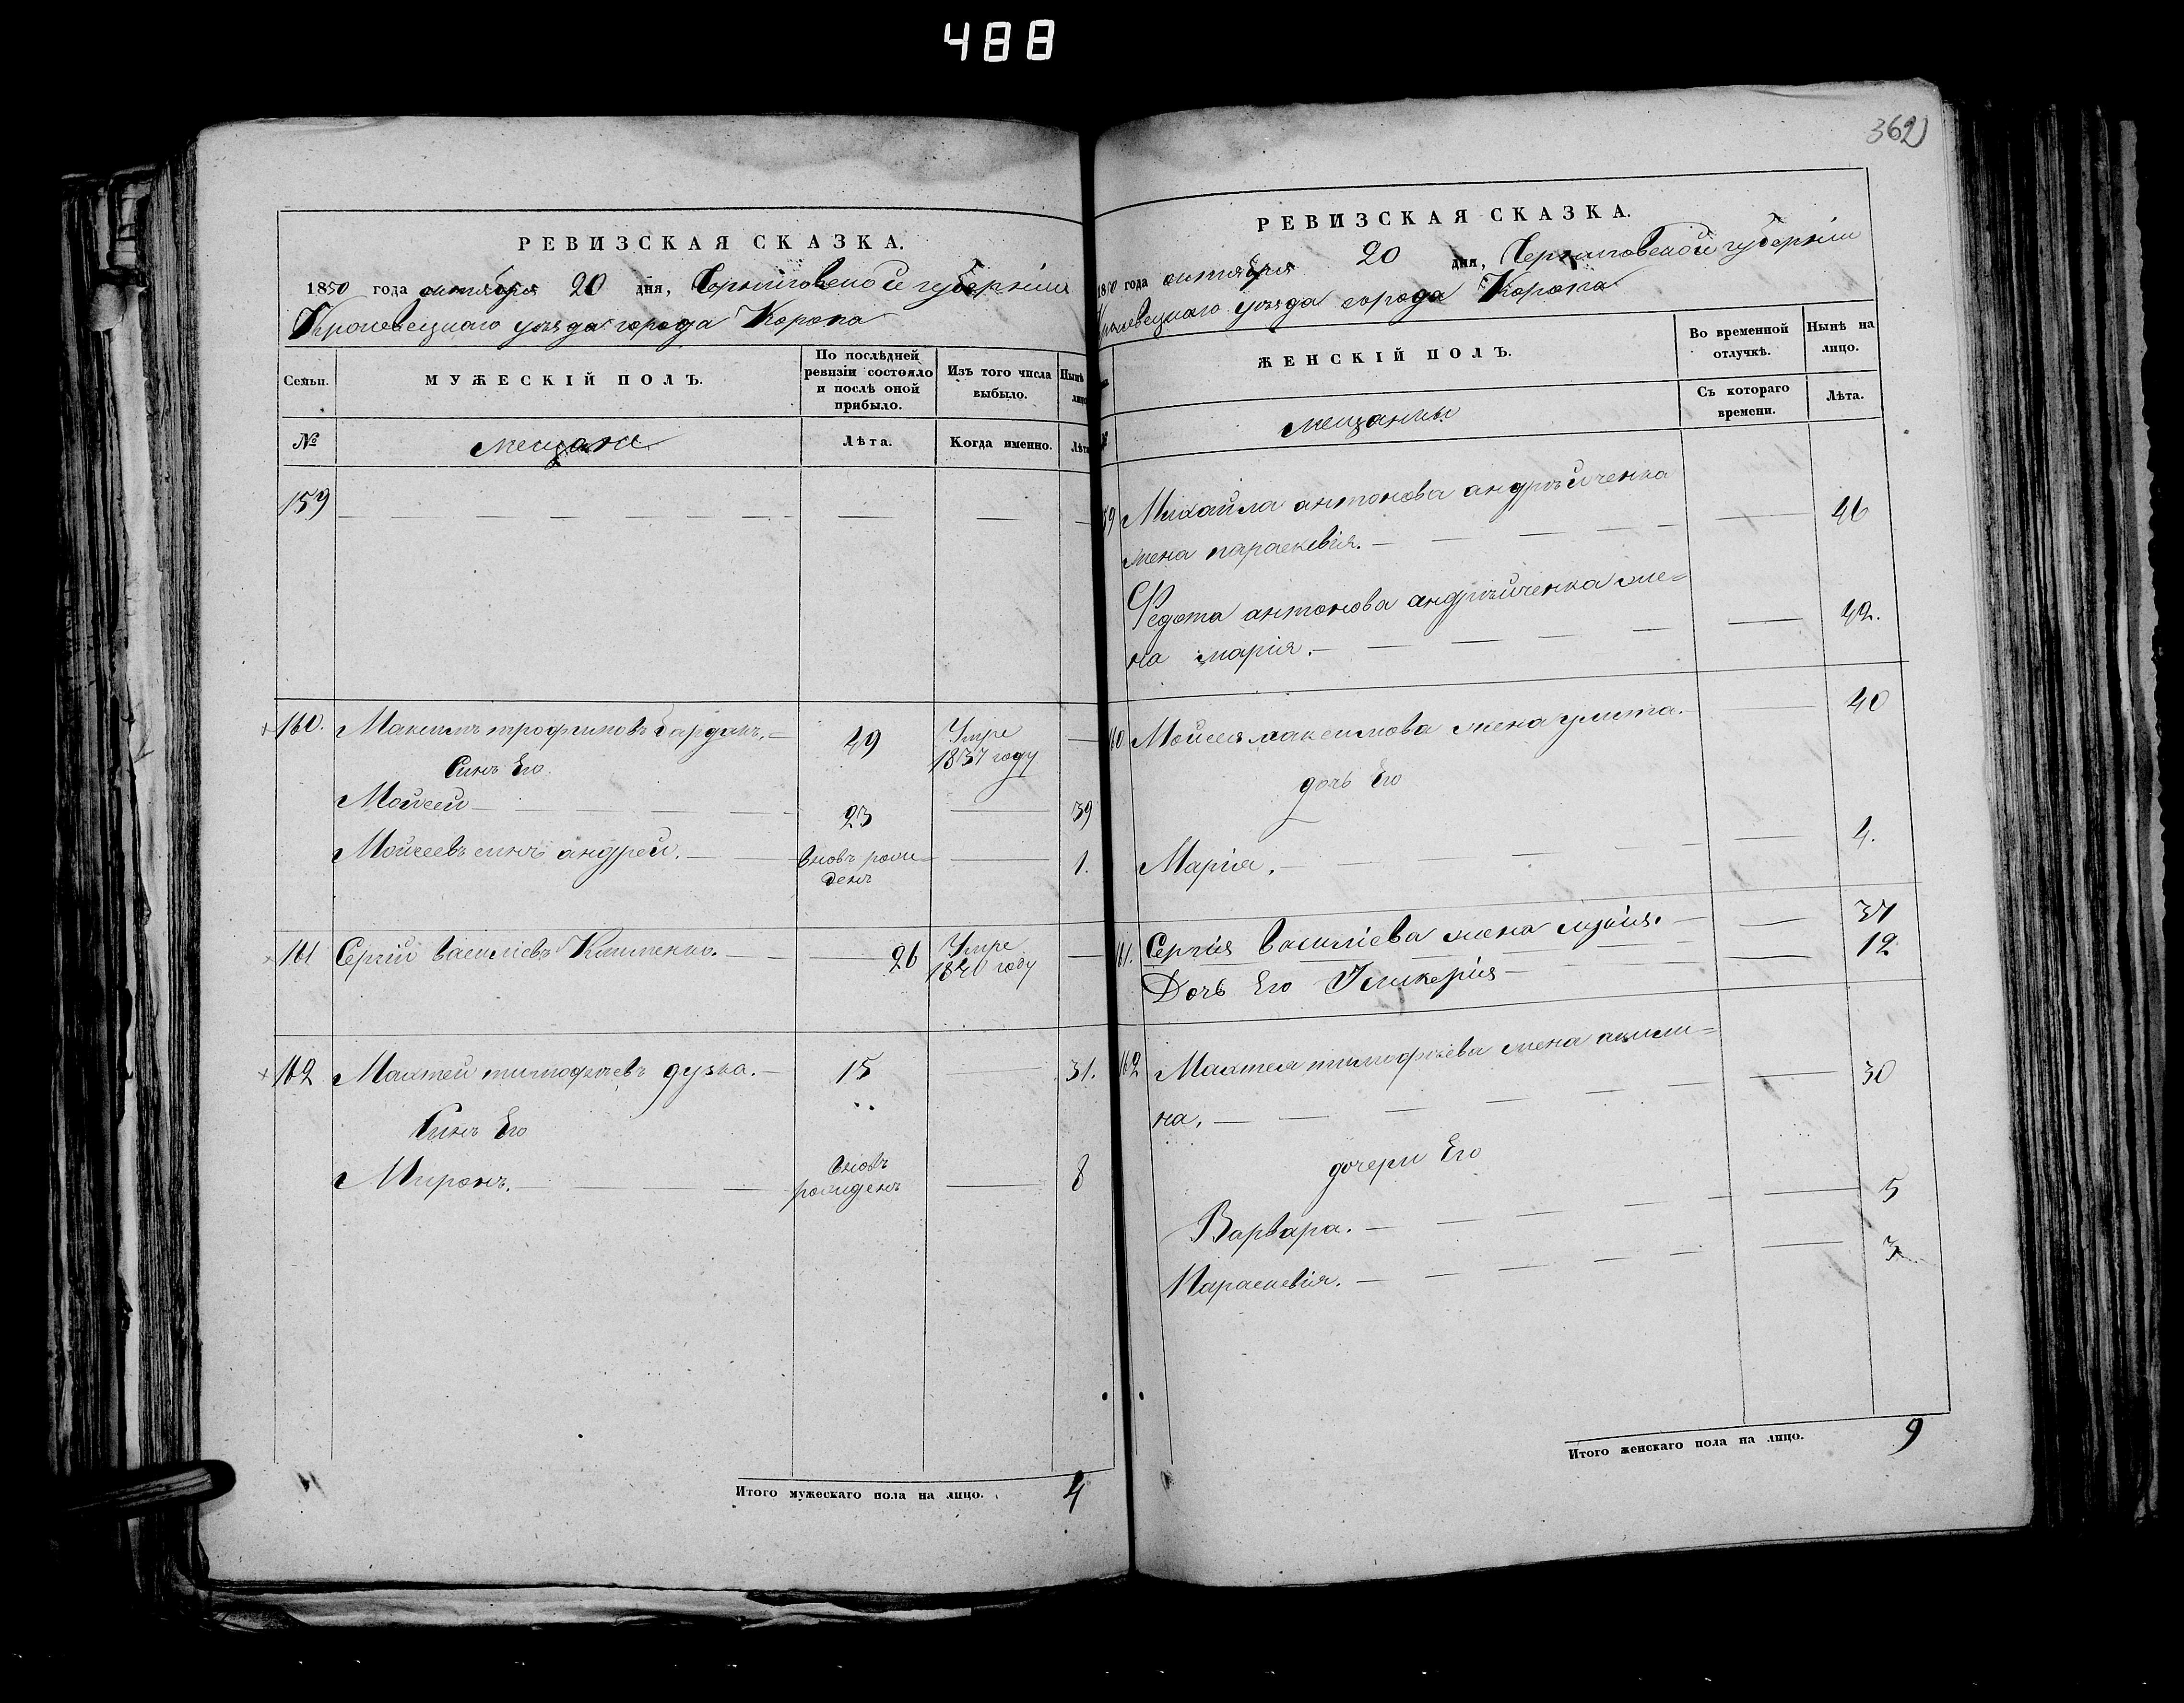 488
362
РЕВИЗСКАЯ СКАЗКА.
1850 года октября 20 дня, Черниговской губерніи
Кролевецкаго уезда города Коропа
Семьи.
МУЖЕСКІЙ ПОЛЪ.
По послѣдней ревизіи состояло и послѣ оной прибыло.
Изъ того числа выбыло.
Нынѣ
лицо
№
мещане
Лѣта.
Когда именно.
Лѣта
159
160. Максимъ трофимовъ бардакъ. 49 Умре 1837 году
Сынъ Его
Мойсей 23 39
Мойсеевъ сынъ андрей. вновь рожденъ 1.
161 Сергій василіевъ 26 Умре 1840 году
162 Маттей тимофеевъ дузка. 15 31.
Сынъ Его
Миронъ. вновъ рожденъ 8
Итого мужескаго пола на лицо. 4
РЕВИЗСКАЯ СКАЗКА.
1850 года октября 20 дня, Черниговской губерніи
Кролевецкаго уезда города Коропа
ЖЕНСКІЙ ПОЛЪ.
Во временной отлучкѣ.
Нынѣ на лицо.
мещанки
Съ котораго времени.
Лѣта.
59 Михайла антонова андрѣйченка
жена параскевія. 46
Федота антонова андрѣйченка же=
на марія. 42.
60 Мойсея максимова жена улита. 40
дочь Его
Марія. 4.
161. Сергія василіева жена 37
Дочь Его Гликерія 12
162 Маттея тимофѣева жена акили=
на. 30
дочери Его
Варвара. 5
Параскевія. 3
Итого женскаго пола на лицо. 9